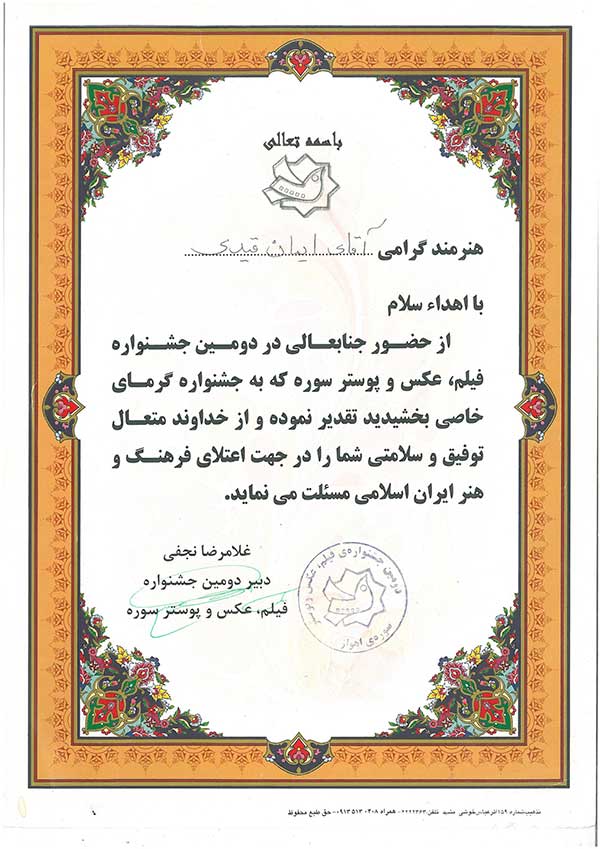 باسمه تعالی
هنرمند گرامی آقای ایمان قیدی
با اهداء سلام
از حضور جنابعالی در دومین جشنواره
فیلم، عکس و پوستر سوره که به جشنواره گرمای
خاصی بخشیدید تقدیر نموده و از خداوند متعال
توفیق و سلامتی شما را در جهت اعتلای فرهنگ و
هنر ایران اسلامی مسئلت می نماید.
غلامرضا نجفی
دبیر دومین جشنواره
فیلم، عکس و پوستر سوره
دومین جشنواره‌ی فیلم، عکس و پوستر
سوره‌ی اهواز
تلفن: ۲۲۲۲۳۶۳ - همراه ۰۴۰۸ ۵۱۳ ۰۹۱۳ - حق طبع محفوظ